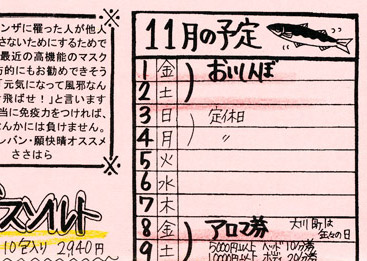 ンザに罹った人が他人
さないためにするためで
最近の高機能のマスク
方的にもお勧めできそう
「元気になって風邪なん
飛ばせ!」と言います
当に免疫力をつければ、
なんかには負けません。
レバン・願快晴オススメ
ささはら
スソルト
10包入り 2,940円
11月の予定
1 金 おいしんぼ
2 土
3 日 定休日
4 月 〃
5 火
6 水
7 木
8 金 アロマ券 大川町は
年々の日
9 土 5000円以上 ヘッド10分券
10000円以上 ボディ20分券